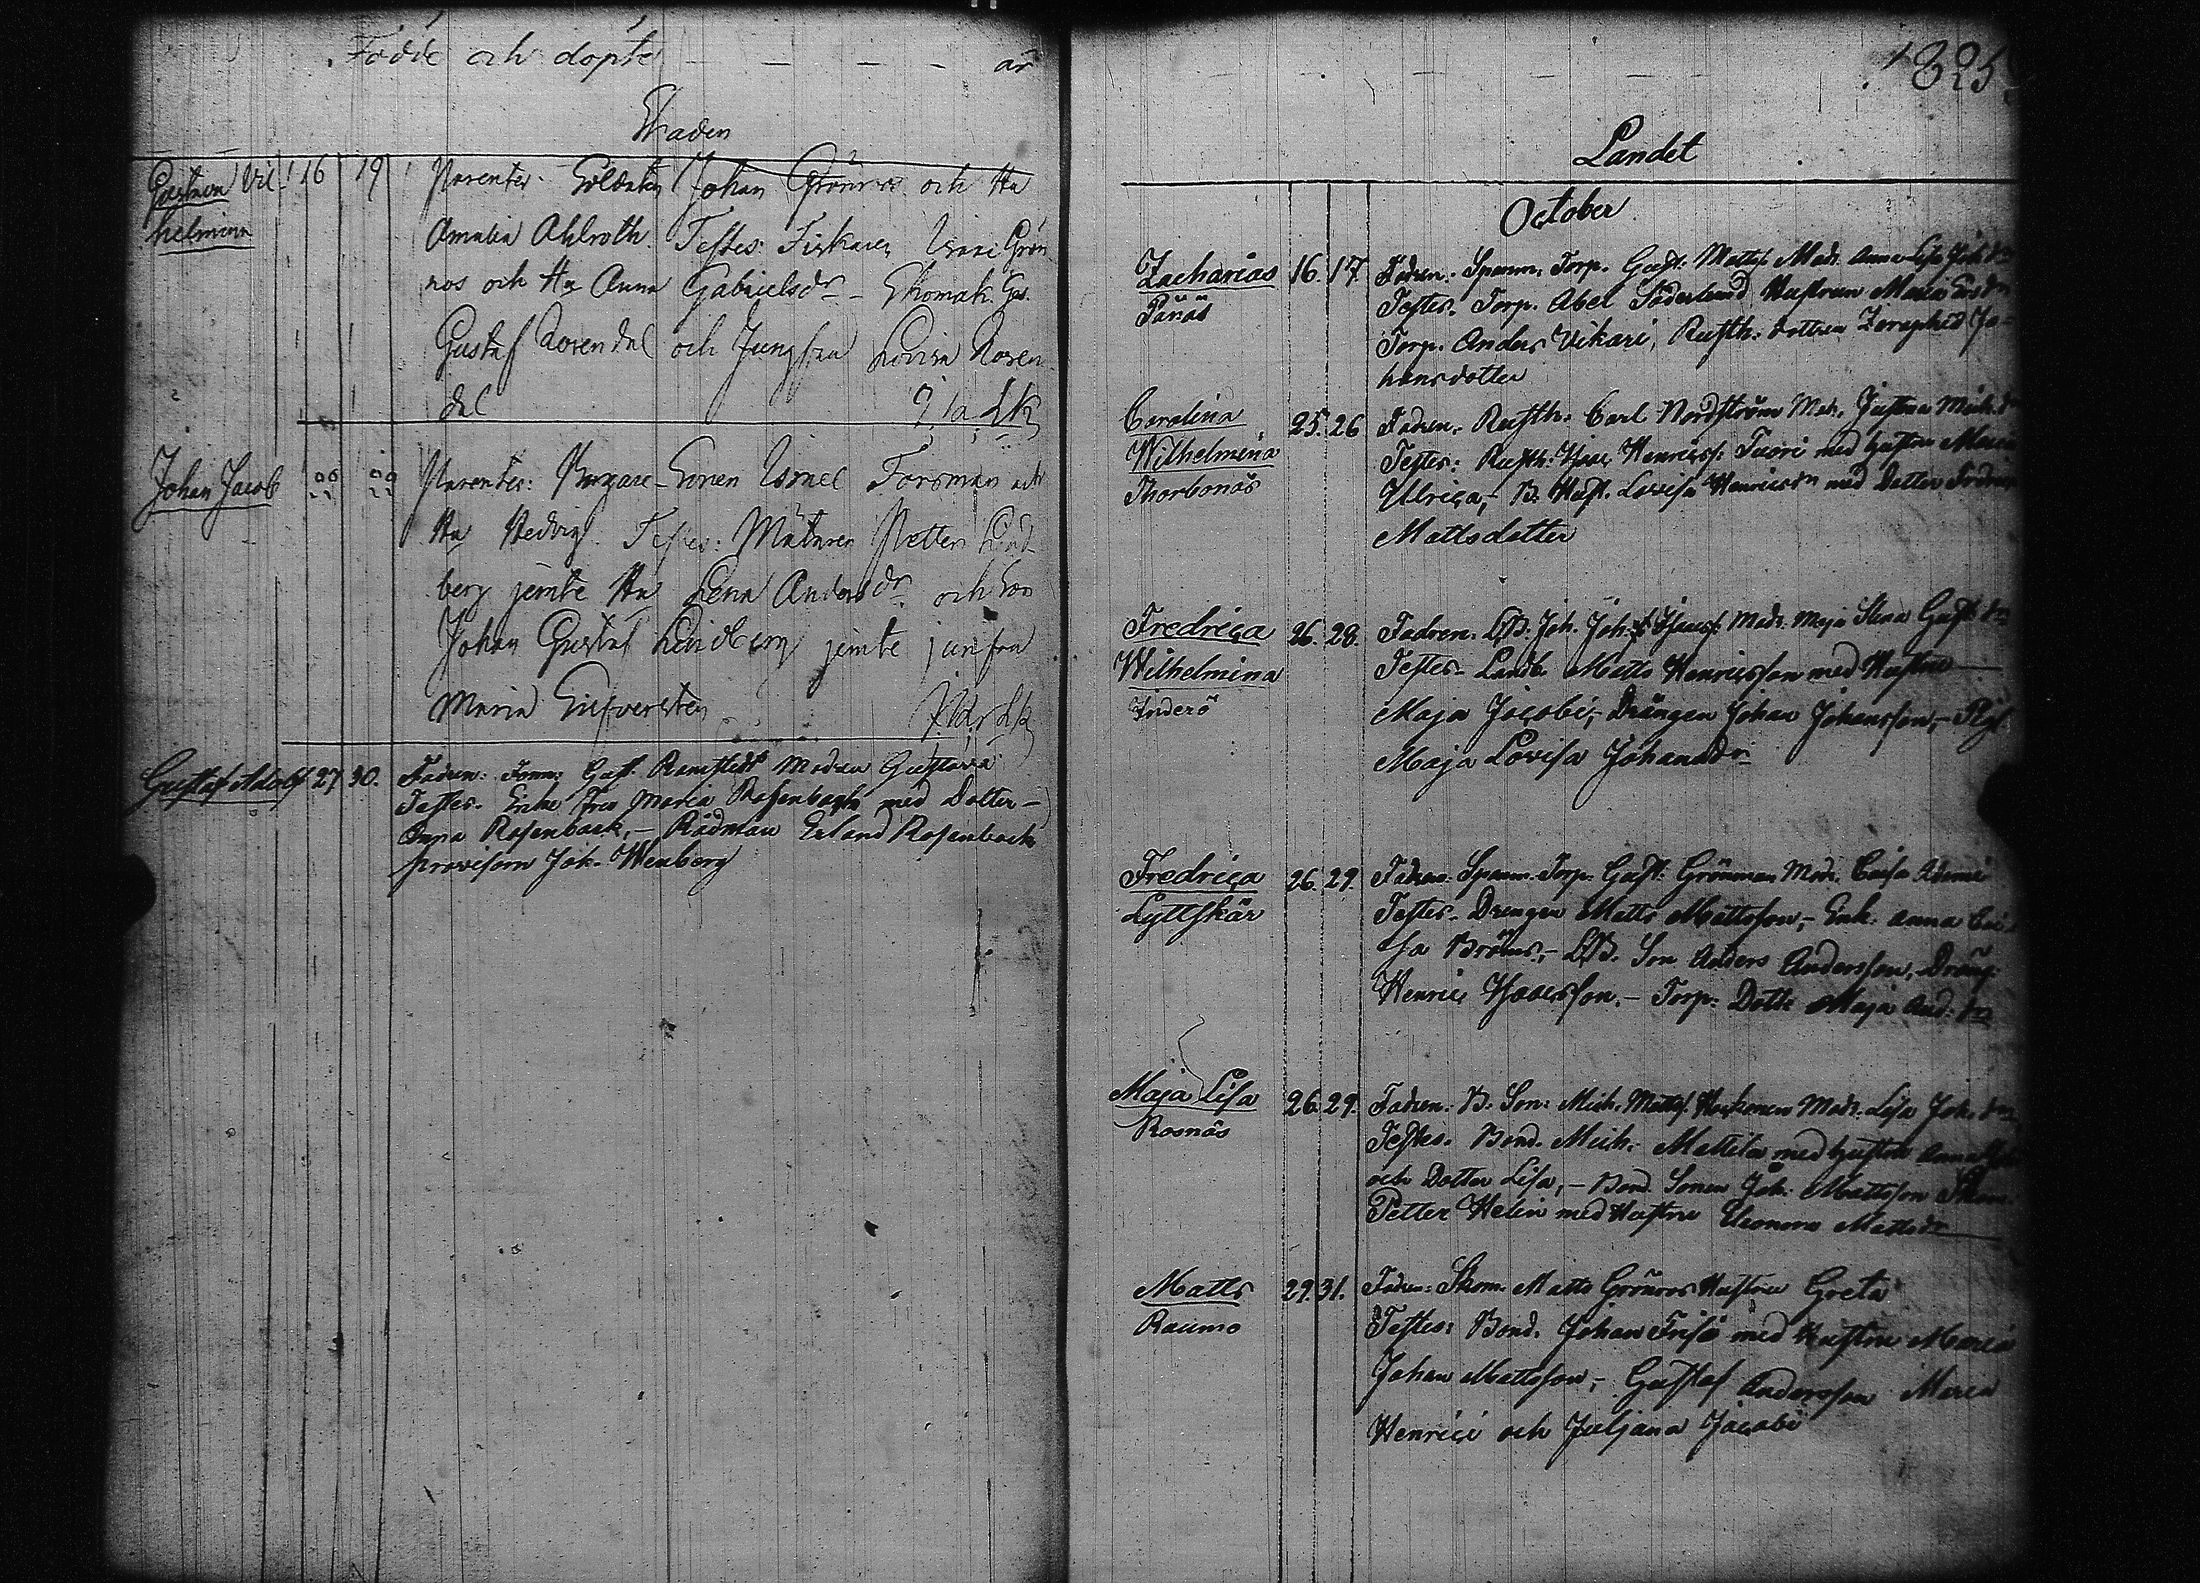 Födde och döpte år
Staden
Gustava Vil-
helmina
16 19 Parentes. Soldaten Johan Grönroos och Hu
Amalia Ahlroth. Testes: Fiskaren Israel Grön
ros och Hu Anna Gabrielsdr - Skomak. Ges.
Gustaf Rosendal och Jungfru Lovisa Rosen
dal
Johan Jacob 22 22 Parentes: Borgare-Sonen Israel Forsman och
Hu Hedvig. Testes: Mätaren Petter Lind
berg jemte Hu Lena Andersdr och Son
Johan Gustaf Lindberg jemte junfru
Maria
Gustaf Adolf 27 30. Fadren: Gust. Ramstedt Modren Gustava
Testes. Enke Fru Maria Rosenback med Dotter -
Anna Rosenback, - Rådman Erland Rosenback
provisorn Joh. Wenberg
1825
Landet
October
Zacharias 16. 17. Fadren. Spanm. Torp. Gust. Matts. Modr. Anna Lisa Joh. dr
Pänäs
Testes. Torp. Abel Söderlund Hustrun Maria
Torp. Anders Vikari, Rusth. dottren Zeraphia Jo-
hansdotter
Carolina 25. 26 Fadren. Rusth. Carl Nordström Modr. Justina Mich. dr
Wilhelmina
Thorbonäs
Testes: Rusth: Isaac Henricss. Tuori med hustru Maria
Ulrica, - B. Hust. Lovisa Henricsdr med Dotter
Mattsdotter
Fredrica 26. 28. Fadren: LB. Joh. Joh.s. Modr. Maja Stina Gust. dr
Wilhelmina
Inderö
Testes. Landb. Matts Henricsson med Hustru
Maja Jacobi, - Drängen Johan Johansson, - Pig.
Maja Lovisa Johansdr
Fredrica 26. 29. Fadren. Spanm. Torp. Gust. Grönman Modr. Caisa
Lyttskär
Testes. Drengen Matts Mattsson, - Enk. Anna Cai
sa Bröms, - LB. Son Anders Andersson, - Dräng.
Henric Isacsson. - Torp. Dottr Maja And. dr
Maja Lisa 26. 29. Fadren: B. Son: Mich. Matts. Modr. Lisa Joh. dr
Rosnäs
Testes. Bond. Mich: Mattila med hustru Anna
och Dotter Lisa, - Bond. Sonen Joh. Mattsson
Petter Helin med Hustru Eleonora Mattsdr
Matts 29. 31. Fadren: Skom. Matts Grönroos Hustru Greta
Raumo
Testes: Bond. Johan Frisk med Hustru Maria
Johan Mattsson, - Gustaf Andersson Maria
Henrici och Juljana Jacobi